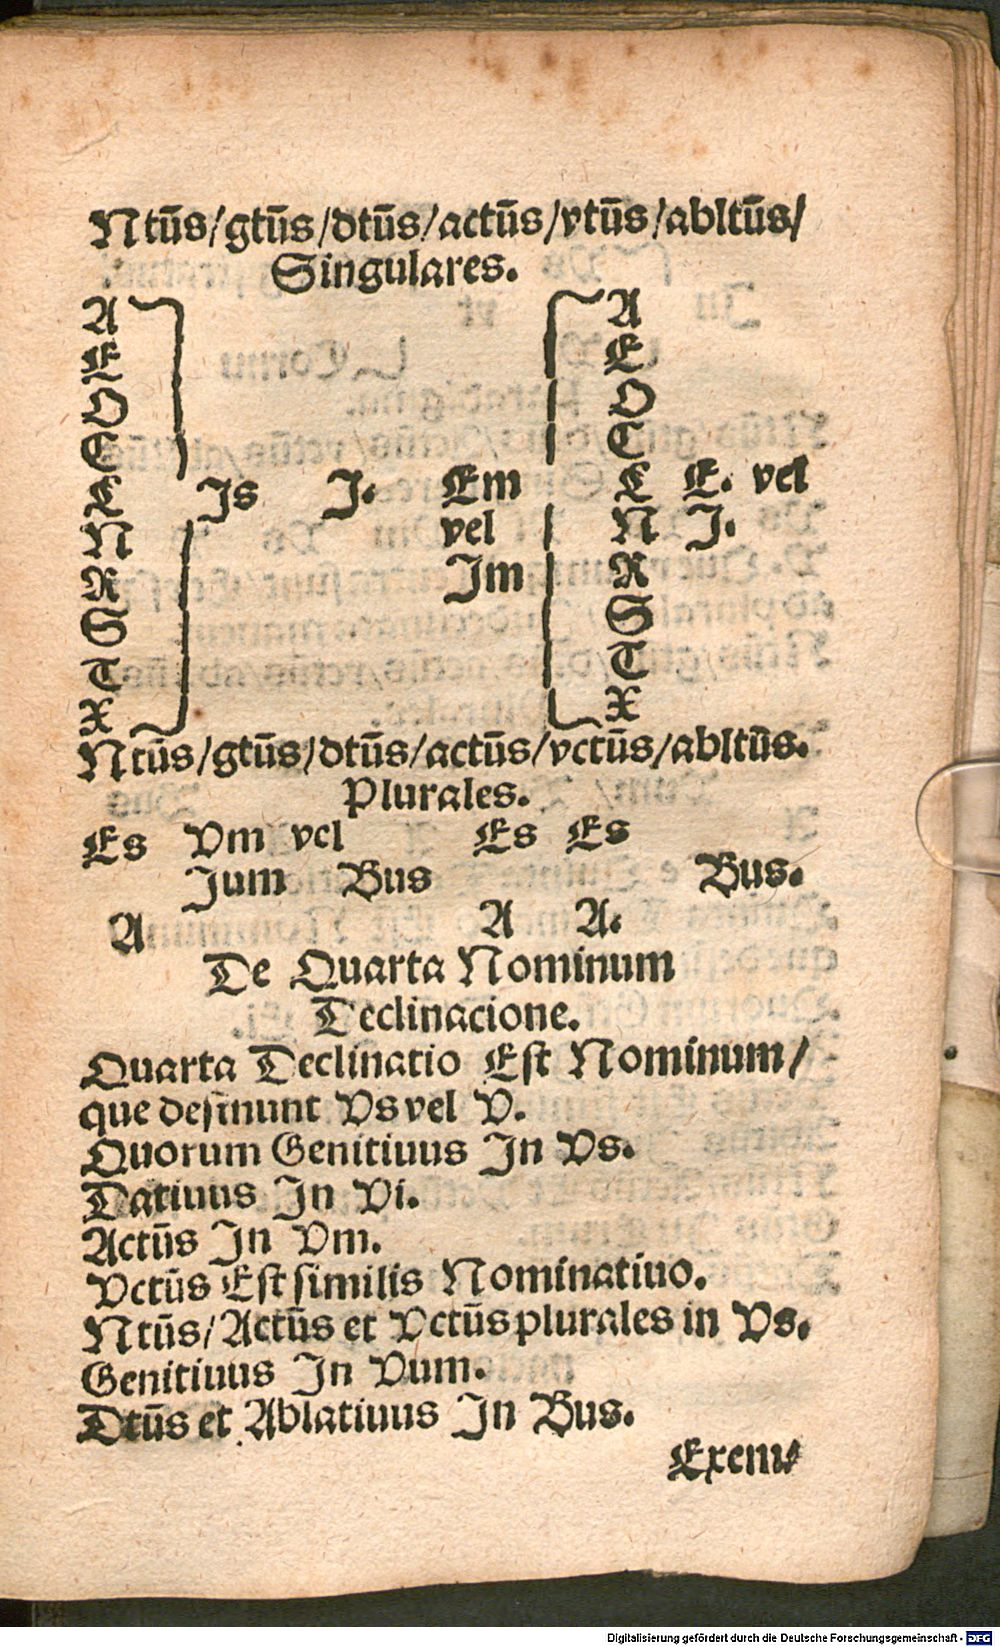 Ntũs/gtũs/dtũs/actũs/vtũs/abltũs/
Singulares.
A A
E E
O O
C C
L L E. vel
Is I. Em
N vel N I.
R Im R
S S
T T
X X
Ntũs/gtũs/dtũs/actũs/vctũs/abltũs.
Plurales.
Es Vm vel Es Es
Ium Bus Bus.
A A A.
De Quarta Nominum
Declinacione.
Quarta Declinatio Est Nominum/
que desinunt Vs vel V.
Quorum Genitiuus In Vs.
Datiuus In Vi.
Actũs In Vm.
Vctũs Est similis Nominatiuo.
Ntũs/Actũs et Vctũs plurales in Vs.
Genitiuus In Vum.
Dtũs et Ablatiuus In Bus.
Exem⸗
Digitalisierung gefördert durch die Deutsche Forschungsgemeinschaft - DFG